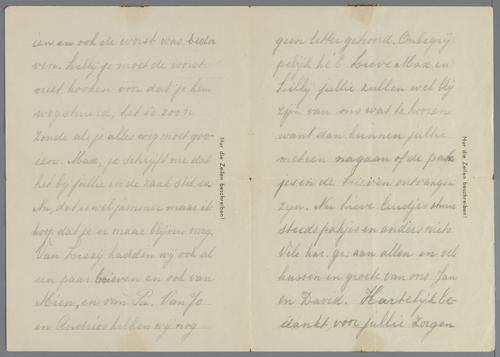 ien en ook de worst was bedor
ven. Lilly je moet de worst
niet kooken voor dat je hem
wegstuurd, het is zoo'n
zonde als je alles weg moet goo-
ien. Max, je schrijft me dat
het bij jullie in de zaak stil is.
Nu, dat is wel jammer maar ik
hoop dat je er maar blijven mag.
Van Lizzij hadden wij ook al
een paar brieven en ook van
Mien, en van Pa. Van Jo
en Andries hebben wij nog
Nur die Zeilen beschreiben!
geen letter gehoord. Onbegrij
pelijk hé! Lieve Max en
Lilly jullie zullen wel blij
zijn van ons wat te hooren
want dan kunnen jullie
meteen nagaan of de pak
jes en de brieven ontvangen
zijn. Nu lieve stuur
steeds pakjes en anders niets
Vele har. gr. aan allen en veel
kussen en groete van ons Jan
en David. Hartelijk be-
dankt, voor jullie zorgen
Nur die Zeilen beschreiben!